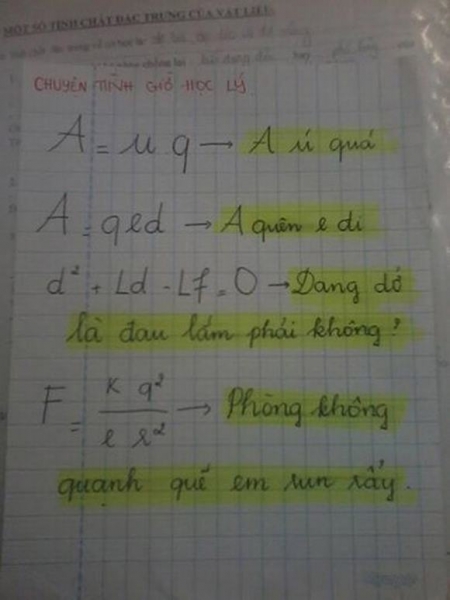 MỘT SỐ TÍNH CHẤT ĐẶC TRƯNG CỦA VẬT LIỆU
CHUYỆN TÌNH GIỜ HỌC LÝ
A = u q → A ú quá
A = qEd → A quên e đi
d² + Ld - Lf = 0 → Dang dở
là đau lắm phải không?
F = k q² / ε r² → Phòng không
quạnh quẽ em run rẩy.